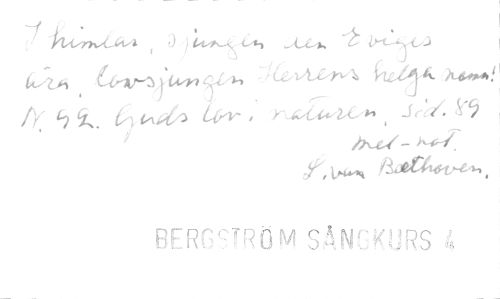 I himlar, sjungen den Eviges
ära, lovsjungen Herrens helga namn!
N. 92. Guds lov i naturen, sid. 89
mel-not.
L. van Beethoven.
BERGSTRÖM SÅNGKURS 4